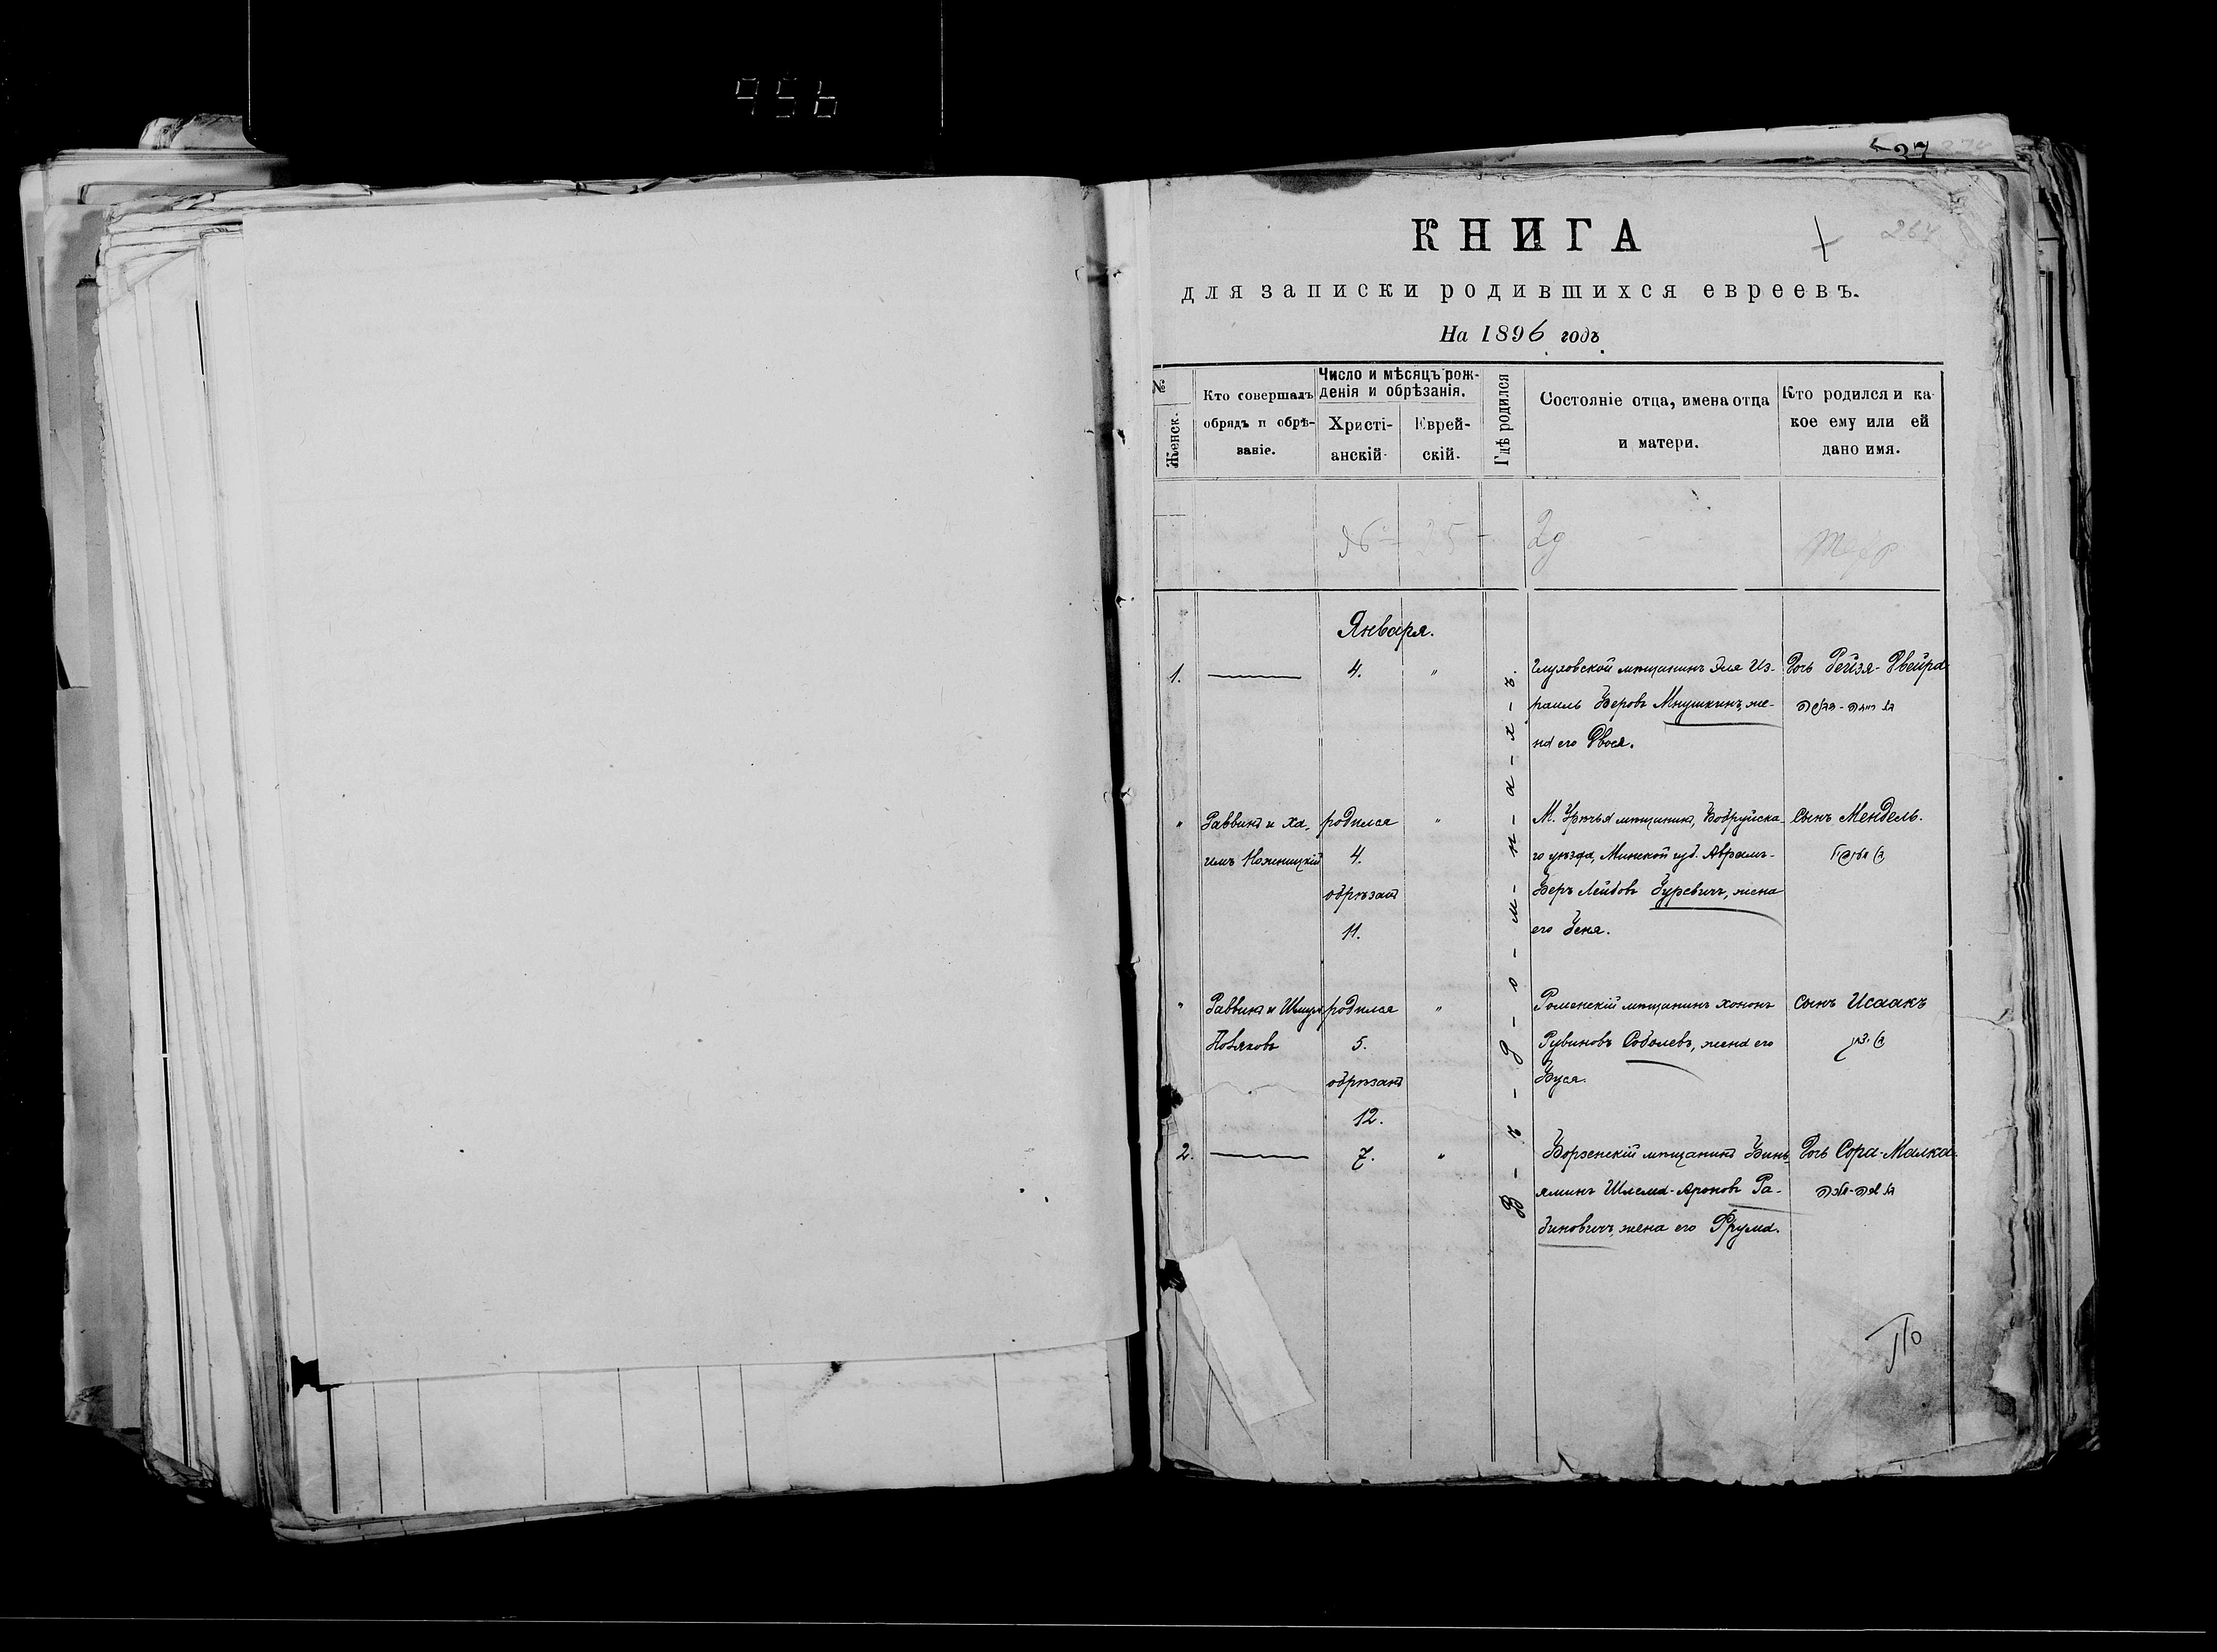 956
37
274
264
КНИГА
для записки родившихся евреевъ.
На 1896 годъ
№
Женск.
Кто совершалъ
обрядъ п обрѣ-
заніе.
Число и мѣсяцъ рож-
денія и обрѣзанія.
Христі-
анскій.
Еврей-
скій.
Гдѣ родился
Состояніе отца, имена отца
и матери.
Кто родился и ка-
кое ему или ей
дано имя.
Января.
В-ъ-д-о-м-н-а-х-ъ.
1.
4.
"
Глуховской мѣщанинъ Эля Из-
раиль Беровъ Мнушкинъ, же-
на его Двося.
Дочь Рейзя-Двейра
"
Раввинъ и Ха-
имъ Ноженицкій
родился
4.
обрѣзанъ
11.
"
М. Урѣчья мѣщанинъ, Бобруйска-
го уѣзда, Минской губ. Абрамъ-
Беръ Лейбовъ Гуревичъ, жена
его Геня.
Сынъ Мендель.
"
Раввинъ и
родился
5.
обрѣзанъ
12.
"
Роменскій мѣщанинъ Хононъ
Рувиновъ Соболевъ, жена его
Буся.
Сынъ Исаакъ
2.
7.
"
Борзенскій мѣщанинъ Бинь-
яминъ Шлема-Ароновъ Ра-
биновичъ, жена его Фрума.
Дочь Сора-Малка